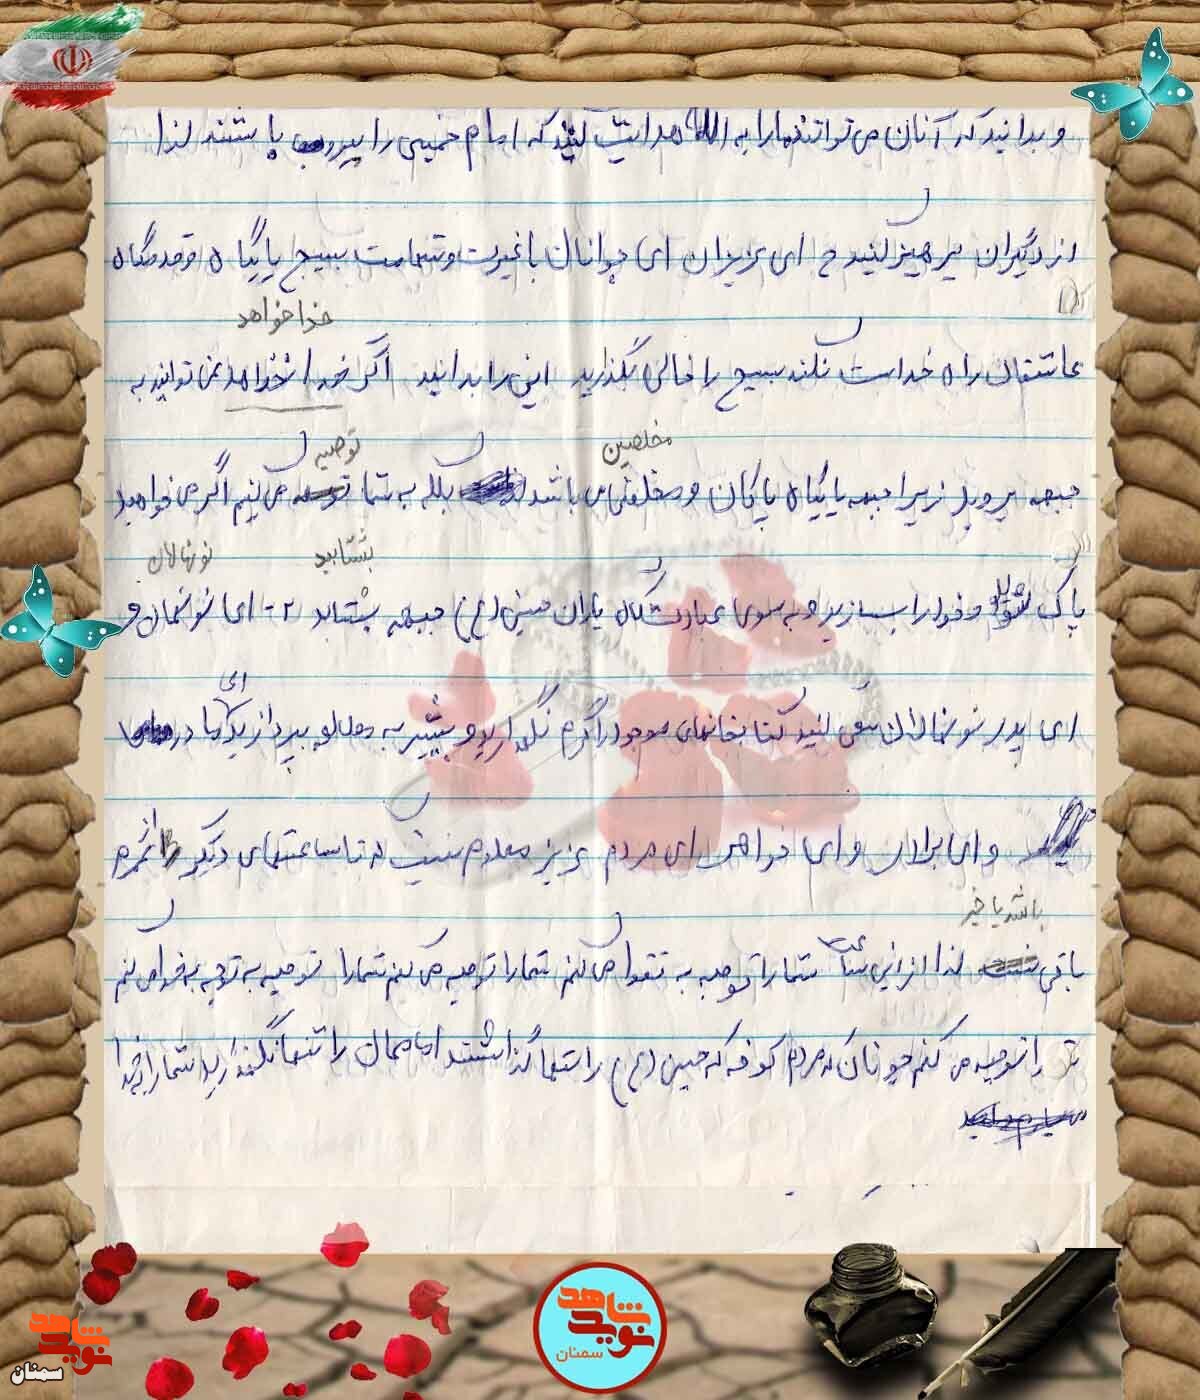 و بدانید که آنان می توانند ما را به الله هدایت کنند که امام خمینی را پیرو باشند لذا
از دیگران پرهیز کنید ای عزیزان ای جوانان با غیرت و شهامت بسیج پایگاه و قدمگاه
خدا خواهد
عاشقان راه خداست نکند بسیج را خالی بگذارید این را بدانید اگر خدا نخواهد نمی توانید به
توصیه مخلصین
جبهه بروید زیرا جبهه پایگاه پاکان و مخلصین می باشد بلکه به شما توصیه می کنم اگر می خواهید
بشتابید نونهالان
پاک شوید و خود را بسازید و به سوی عبادتگاه یاران حسین (ع) جبهه بشتابد ۲- ای نونهالان و
ای
ای پدر نونهالان سعی کنید کتابخانهای موجود را گرم نگهدارید و بیشتر به مطالعه بپردازید
و ای برادر و ای خواهر ای مردم عزیز معلوم نیست که تا ساعتهای دیگر زنده
باشد یا خیر
باقی لذا از این ساعت شما را توصیه به تقوا می کنم شما را توصیه می کنم شما را توصیه به توجه به خدا می کنم
را توصیه می کنم چونانکه مردم کوفه که حسین (ع) را تنها گذاشتند امامان را تنها نگذارید شما را بخدا
شاهد
نوید
سمنان
شاهد
نوید
سمنان